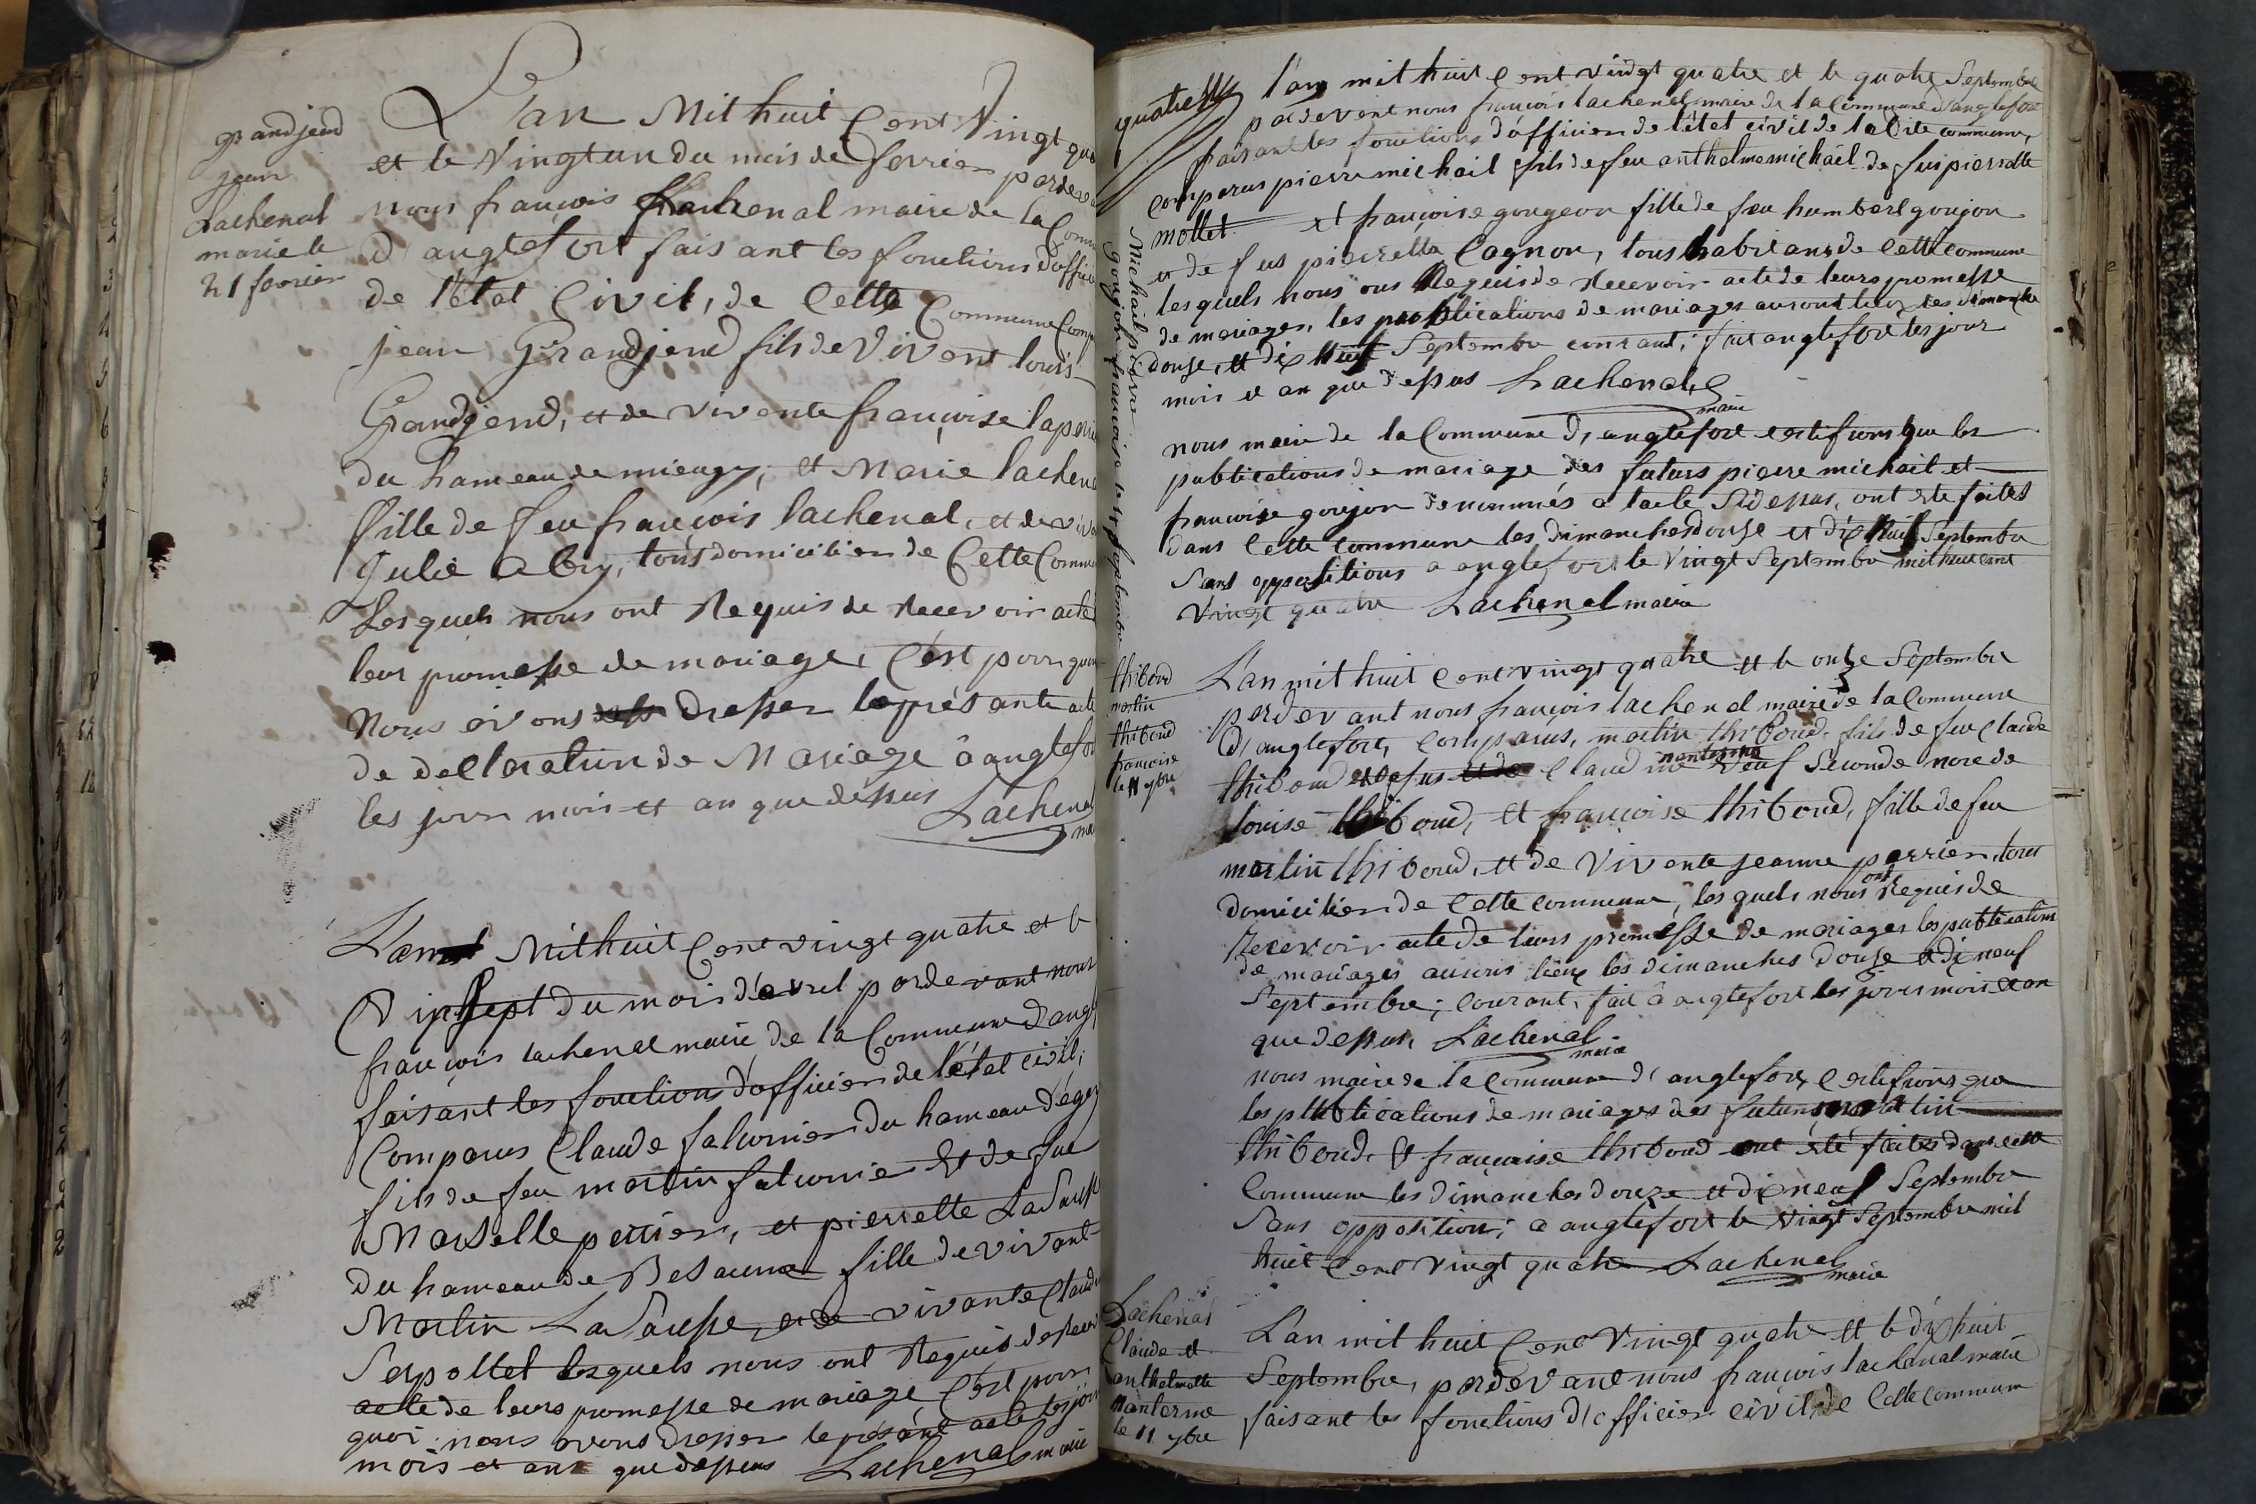 grandjend
jean
Lachenal
marie le
21 fevrier
L'an Mil huit Cent Vingt qua
et le Vingt un du mois de fevrier pardeva
nous françois Lachenal maire de la Comm
d'anglefort faisant les fonctions d'offici
de l'état Civil, de Cette Commune Comp
jean Grandjend fils de Vivent louis
Grandjend, et de vivente françoise laperri
du hameau de mieugy, et Marie lachena
fille de feu françois lachenal, et de viva
Julie Abry, tous domiciliés de Cette Commu
Lesquels nous ont Requis de Recevoir acte
leur promesse de mariage, C'est pourquoi
Nous avons dresser le présante acte
de declaration de Mariage à anglefor
les jour mois et an que déssus Lachenal
mai
L'an Mil huit Cent vingt quatre et le
Vinsept du mois d'avril pardevant nous
françois lachenal maire de la Commune d'angl
faisant les fonction d'officier de l'état civil,
Comparus Claude falconier du hameau d'égey
fils de feu martin falconie et de feue
Marselle perrier, et pierrette LaSausse
du hameau de Besaune fille de vivant
Martin LaSausse, et de vivante Claudi
Serpollet lesquels nous ont Requis de
acte de leurs promesse de mariage C'est pour
quoi nous avons dresser le présent acte les jour
mois et ans que dessus Lachenal maire
quatre
L'an mil huit Cent vindgt quatre et le quatre Septembre
pardevent nous françois lachenal maire de la Commune d'anglefort
faisant les fonctions d'officier de l'état civil de la dite commune,
comparus pierre michail fils de feu anthelme michail de fus pierrette
mollet et françoise gougeon fille de feu humbert goujon
et de fus pierrette Cagnon, tous habitans de Cette Commune
lesquels nous ons Requis de Recevoir acte de leurs promesse
de mariages, les publications de mariages auront lieux les dimanche
douse, et dix neuf Septembre courant, fait anglefort les jour
mois et an que dessus Lachenal
maire
Michail pierre
goujon françoise le 4 septembre
nous maire de la Commune d'anglefort certifions que les
publications de mariage des futurs pierre michail et
françoise goujon denommés a l'acte Sidessus, ont été faites
dans Cette Commune les dimanches douse et dix neuf Septembre
Sans oppositions a anglefort le vingt Septembre mil huit cent
Vingt quatre Lachenal maire
thiboud
martin
thiboud
françoise
le 11 7bre
L'an mil huit Cent vingt quatre et le onse Septembre
pardevant nous françois lachenal maire de la Commune
d'anglefort, comparus, martin thiboud, fils de feu Claude
thiboud et de fus Claudine nanterme veuf Seconde nore de
louise thiboud, et françoise thiboud, fille de feu
martin thiboud, et de Vivente jeanne perrier, tous
domiciliés de Cette commune, lesquels nous ont Requis de
Recevoir acte de leurs promesse de mariages les publications
de mariages aurons lieux les dimanches douse et dix neuf
Septembre, Courant, fait à anglefort les jours mois et an
que dessus, Lachenal
maire
nous maire de la Commune d'anglefort Certifions que
les publications de mariages des futurs martin
thiboud, & françoise thiboud ont été faites dans cette
Commune les dimanches douze et dix neuf Septembre
Sans opposition, a anglefort le vingt Septembre mil
huit Cent vingt quatre Lachenal
maire
Lachenal
Claude et
anthelmette
Nanterme
le 11 7bre
L'an mil huit Cent Vingt quatre et le dix huit
Septembre, pardevant nous françois lachenal maire
faisant les fonctions d'officier civil de Cette commune